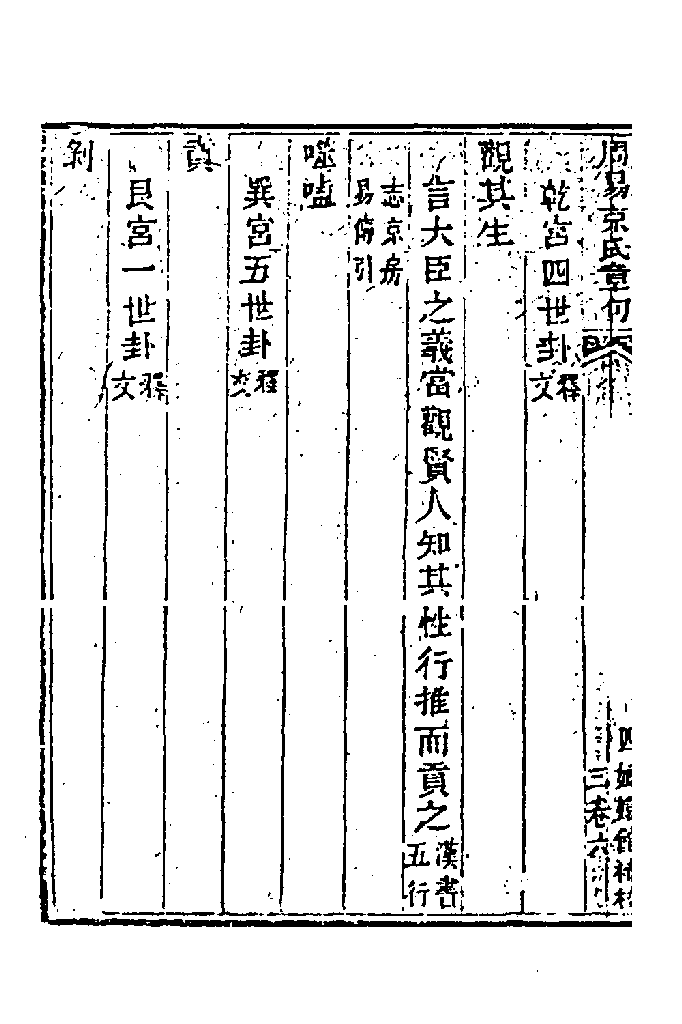 周易京氏章句
乾宮四世卦釋文
觀其生
言大臣之義當觀賢人知其性行推而貢之漢書五行
志京房易傳引
噬嗑
巽宮五世卦釋文
賁
艮宮一世卦釋文
剝
三卷六